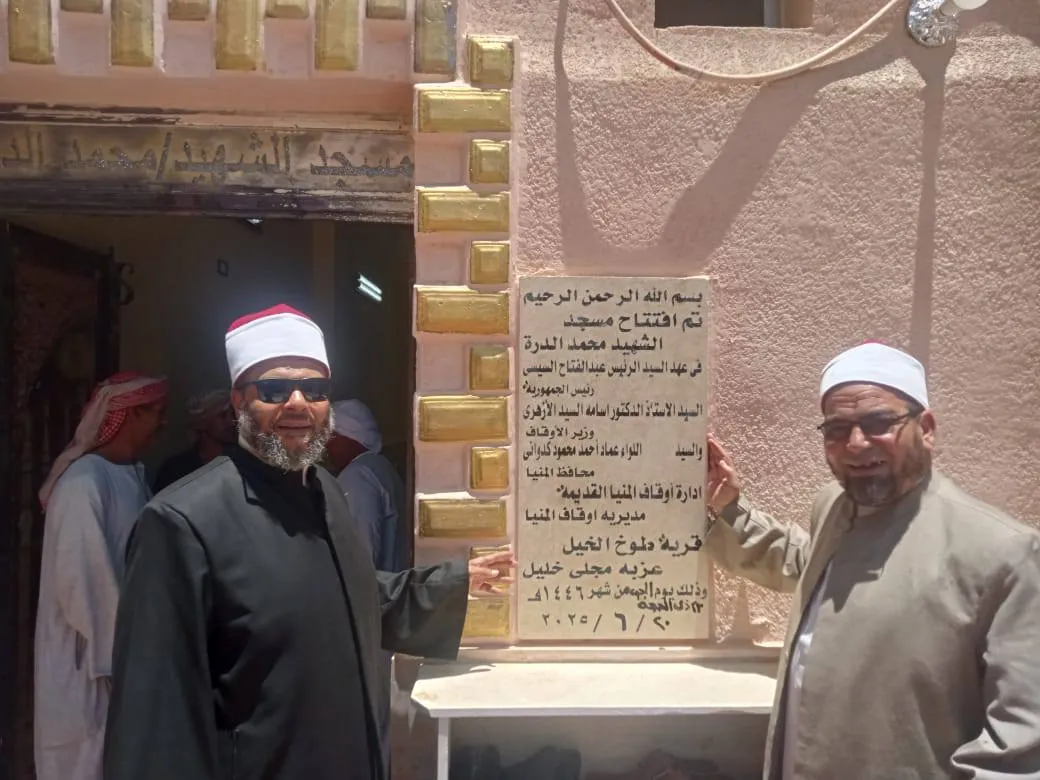 مسجد الشهيد/محمد الد
بسم الله الرحمن الرحيم
تم افتتاح مسجد
الشهيد محمد الدرة
فى عهد السيد الرئيس عبدالفتاح السيسى
رئيس الجمهورية
السيد الاستاذ الدكتور اسامه السيد الأزهرى
وزير الأوقاف
والسيد اللواء عماد أحمد محمود كدوانى
محافظ المنيا
ادارة أوقاف المنيا القديمة
مديريه اوقاف المنيا
قرية طوخ الخيل
عزبه مجلى خليل
وذلك يوم من شهر ١٤٤٦هـ
ذى الحجة
٢٠ / ٦ / ٢٠٢٥